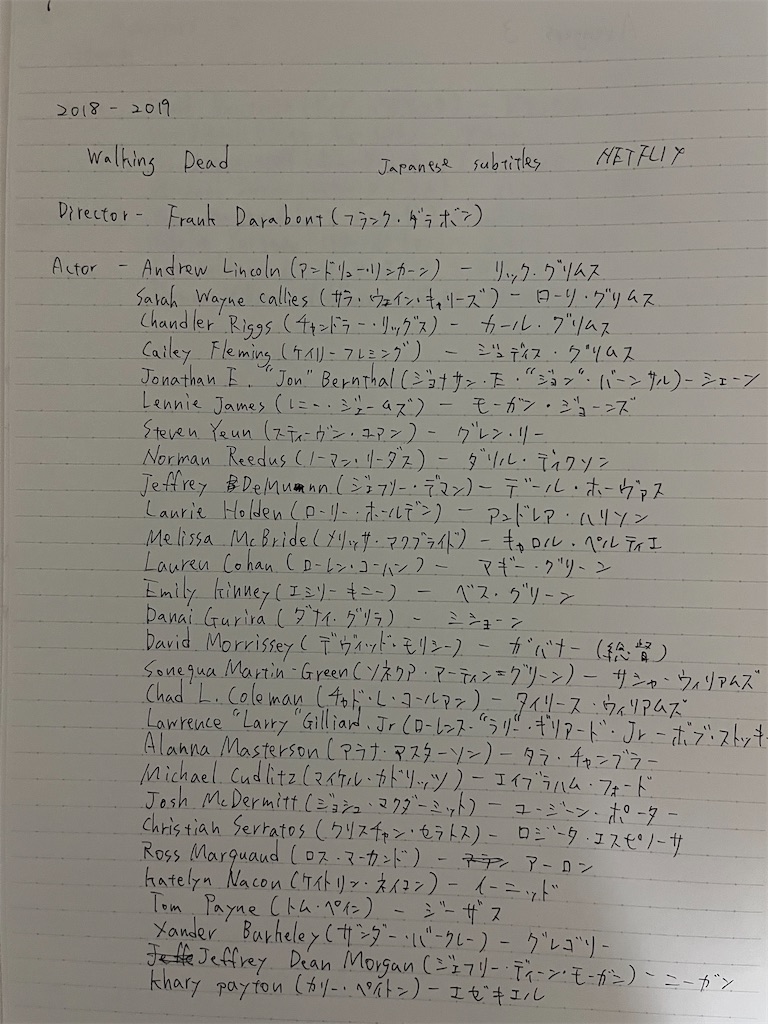 2018 - 2019
Walking Dead Japanese subtitles NETFLIX
Director - Frank Darabont (フランク・ダラボン)
Actor - Andrew Lincoln (アンドリュー・リンカーン) - リック・グリムス
Sarah Wayne Callies (サラ・ウェイン・キャリーズ) - ローリ・グリムス
Chandler Riggs (チャンドラー・リッグス) - カール・グリムス
Cailey Fleming (ケイリー・フレミング) - ジュディス・グリムス
Jonathan E. "Jon" Bernthal (ジョナサン・E・"ジョン"・バーンサル) - シェーン
Lennie James (レニー・ジェームズ) - モーガン・ジョーンズ
Steven Yeun (スティーヴン・ユアン) - グレン・リー
Norman Reedus (ノーマン・リーダス) - ダリル・ディクソン
Jeffrey DeMunn (ジェフリー・デマン) - デール・ホーヴァス
Laurie Holden (ローリー・ホールデン) - アンドレア・ハリソン
Melissa McBride (メリッサ・マクブライド) - キャロル・ペルティエ
Lauren Cohan (ローレン・コーハン) - マギー・グリーン
Emily Kinney (エミリー・キニー) - ベス・グリーン
Danai Gurira (ダナイ・グリラ) - ミショーン
David Morrissey (デヴィッド・モリシー) - ガバナー (総督)
Sonequa Martin-Green (ソネクア・マーティン=グリーン) - サシャ・ウィリアムズ
Chad L. Coleman (チャド・L・コールマン) - タイリース・ウィリアムズ
Lawrence "Larry" Gilliard, Jr (ローレンス・"ラリー"・ギリアード・Jr - ボブ・ストッキ
Alanna Masterson (アラナ・マスターソン) - タラ・チャンブラー
Michael Cudlitz (マイケル・カドリッツ) - エイブラハム・フォード
Josh McDermitt (ジョシュ・マクダーミット) - ユージーン・ポーター
Christian Serratos (クリスチャン・セラトス) - ロジータ・エスピノーサ
Ross Marquaud (ロス・マーカンド) - アーロン
Katelyn Nacon (ケイトリン・ネイコン) - イーニッド
Tom Payne (トム・ペイン) - ジーザス
Xander Barheley (ザンダー・バークレー) - グレゴリー
Jeffrey Dean Morgan (ジェフリー・ディーン・モーガン) - ニーガン
Khary payton (カリー・ペイトン) - エゼキエル